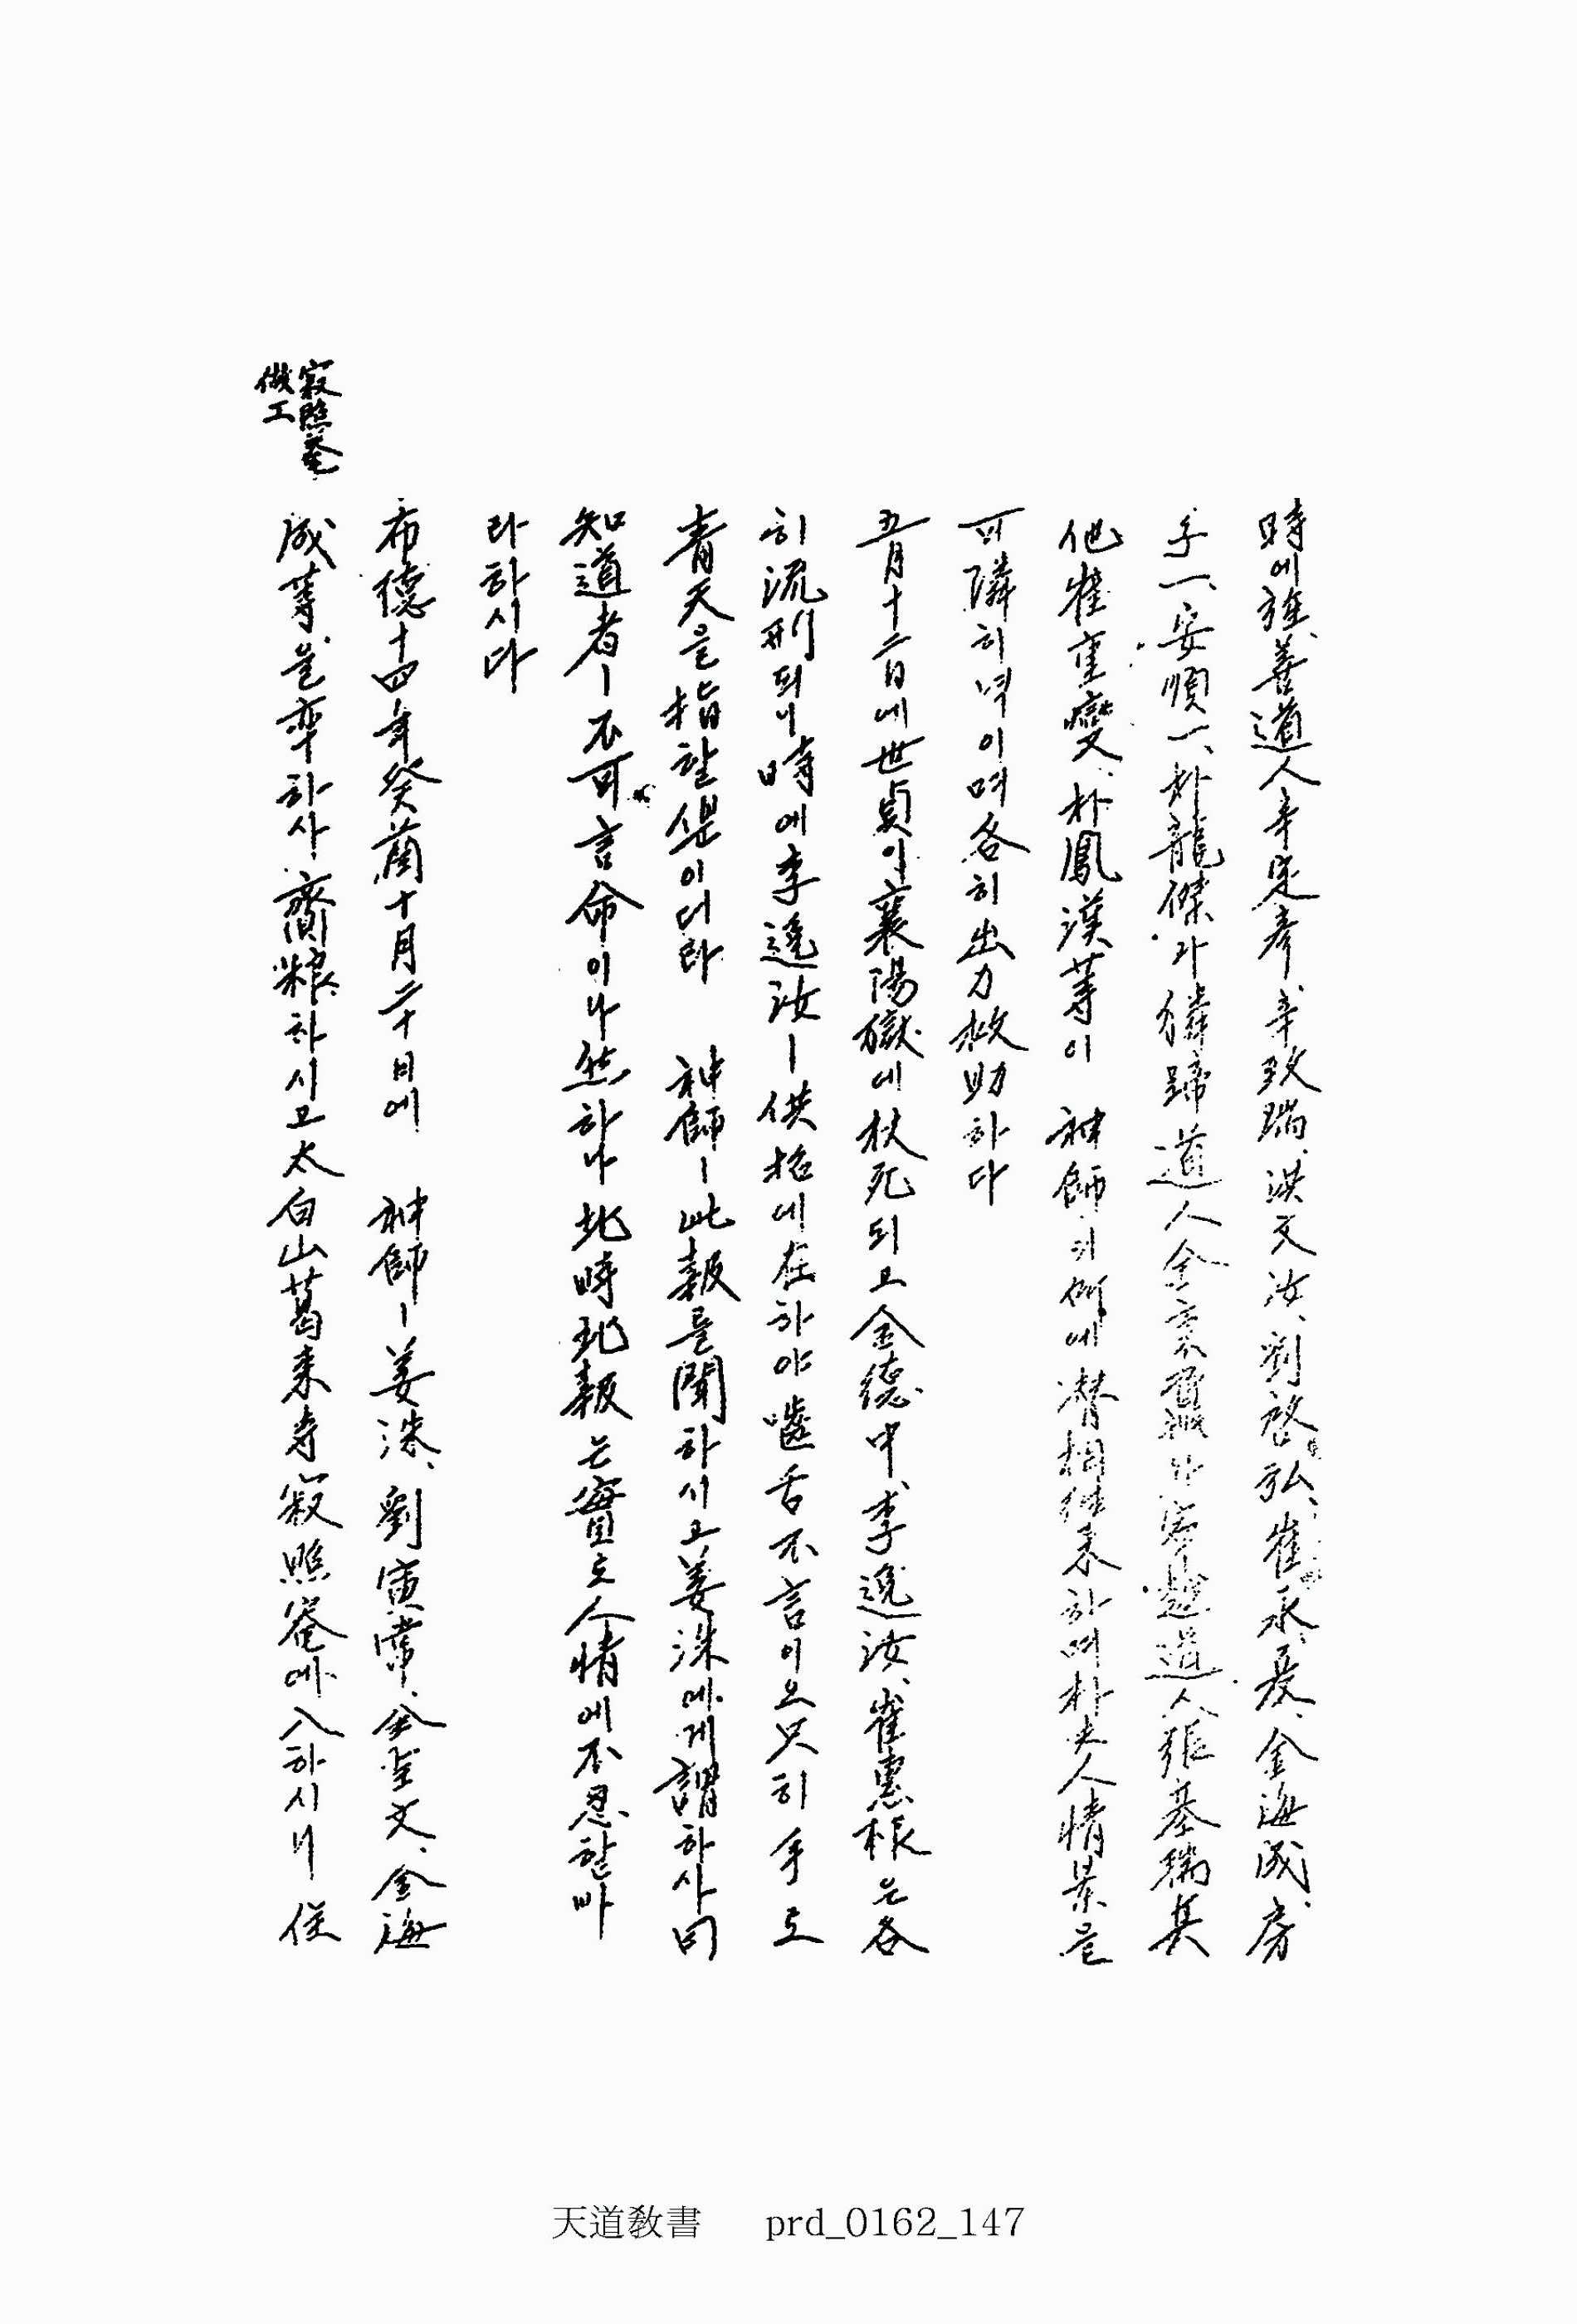 時에 旌善道人 辛定彦、辛致瑞、洪文汝、劉啓弘、崔永夏、金海成、房
子一、安順一、朴龍傑과 麟蹄道人 金 과 寧越道人 張基瑞 其
他 崔重燮、朴鳳漢等이 神師의 所에 潛相往來하며 朴夫人情景을
可隣히 녁이며 各히 出力救助하다
五月十二日에 世貞이 襄陽獄에 杖死되고 金德中、李逸汝、崔惠根은 各
히 流刑되니 時에 李逸汝ㅣ 供招에 在하야 嚙舌不言이오 只히 手로
靑天을 指할 뿐이더라 神師ㅣ 此報를 聞하시고 姜洙에게 謂하사 曰
知道者ㅣ 不可言命이나 然하나 此時此報는 實로 人情에 不忍할 바
라 하시다
寂照菴
做工
布德十四年癸酉十月二十日에 神師ㅣ 姜洙、劉寅常、全聖文、金海
成等을 率하사 齎粮하시고 太白山葛來寺寂照菴에 入하시니 從
天道敎書 prd_0162_147